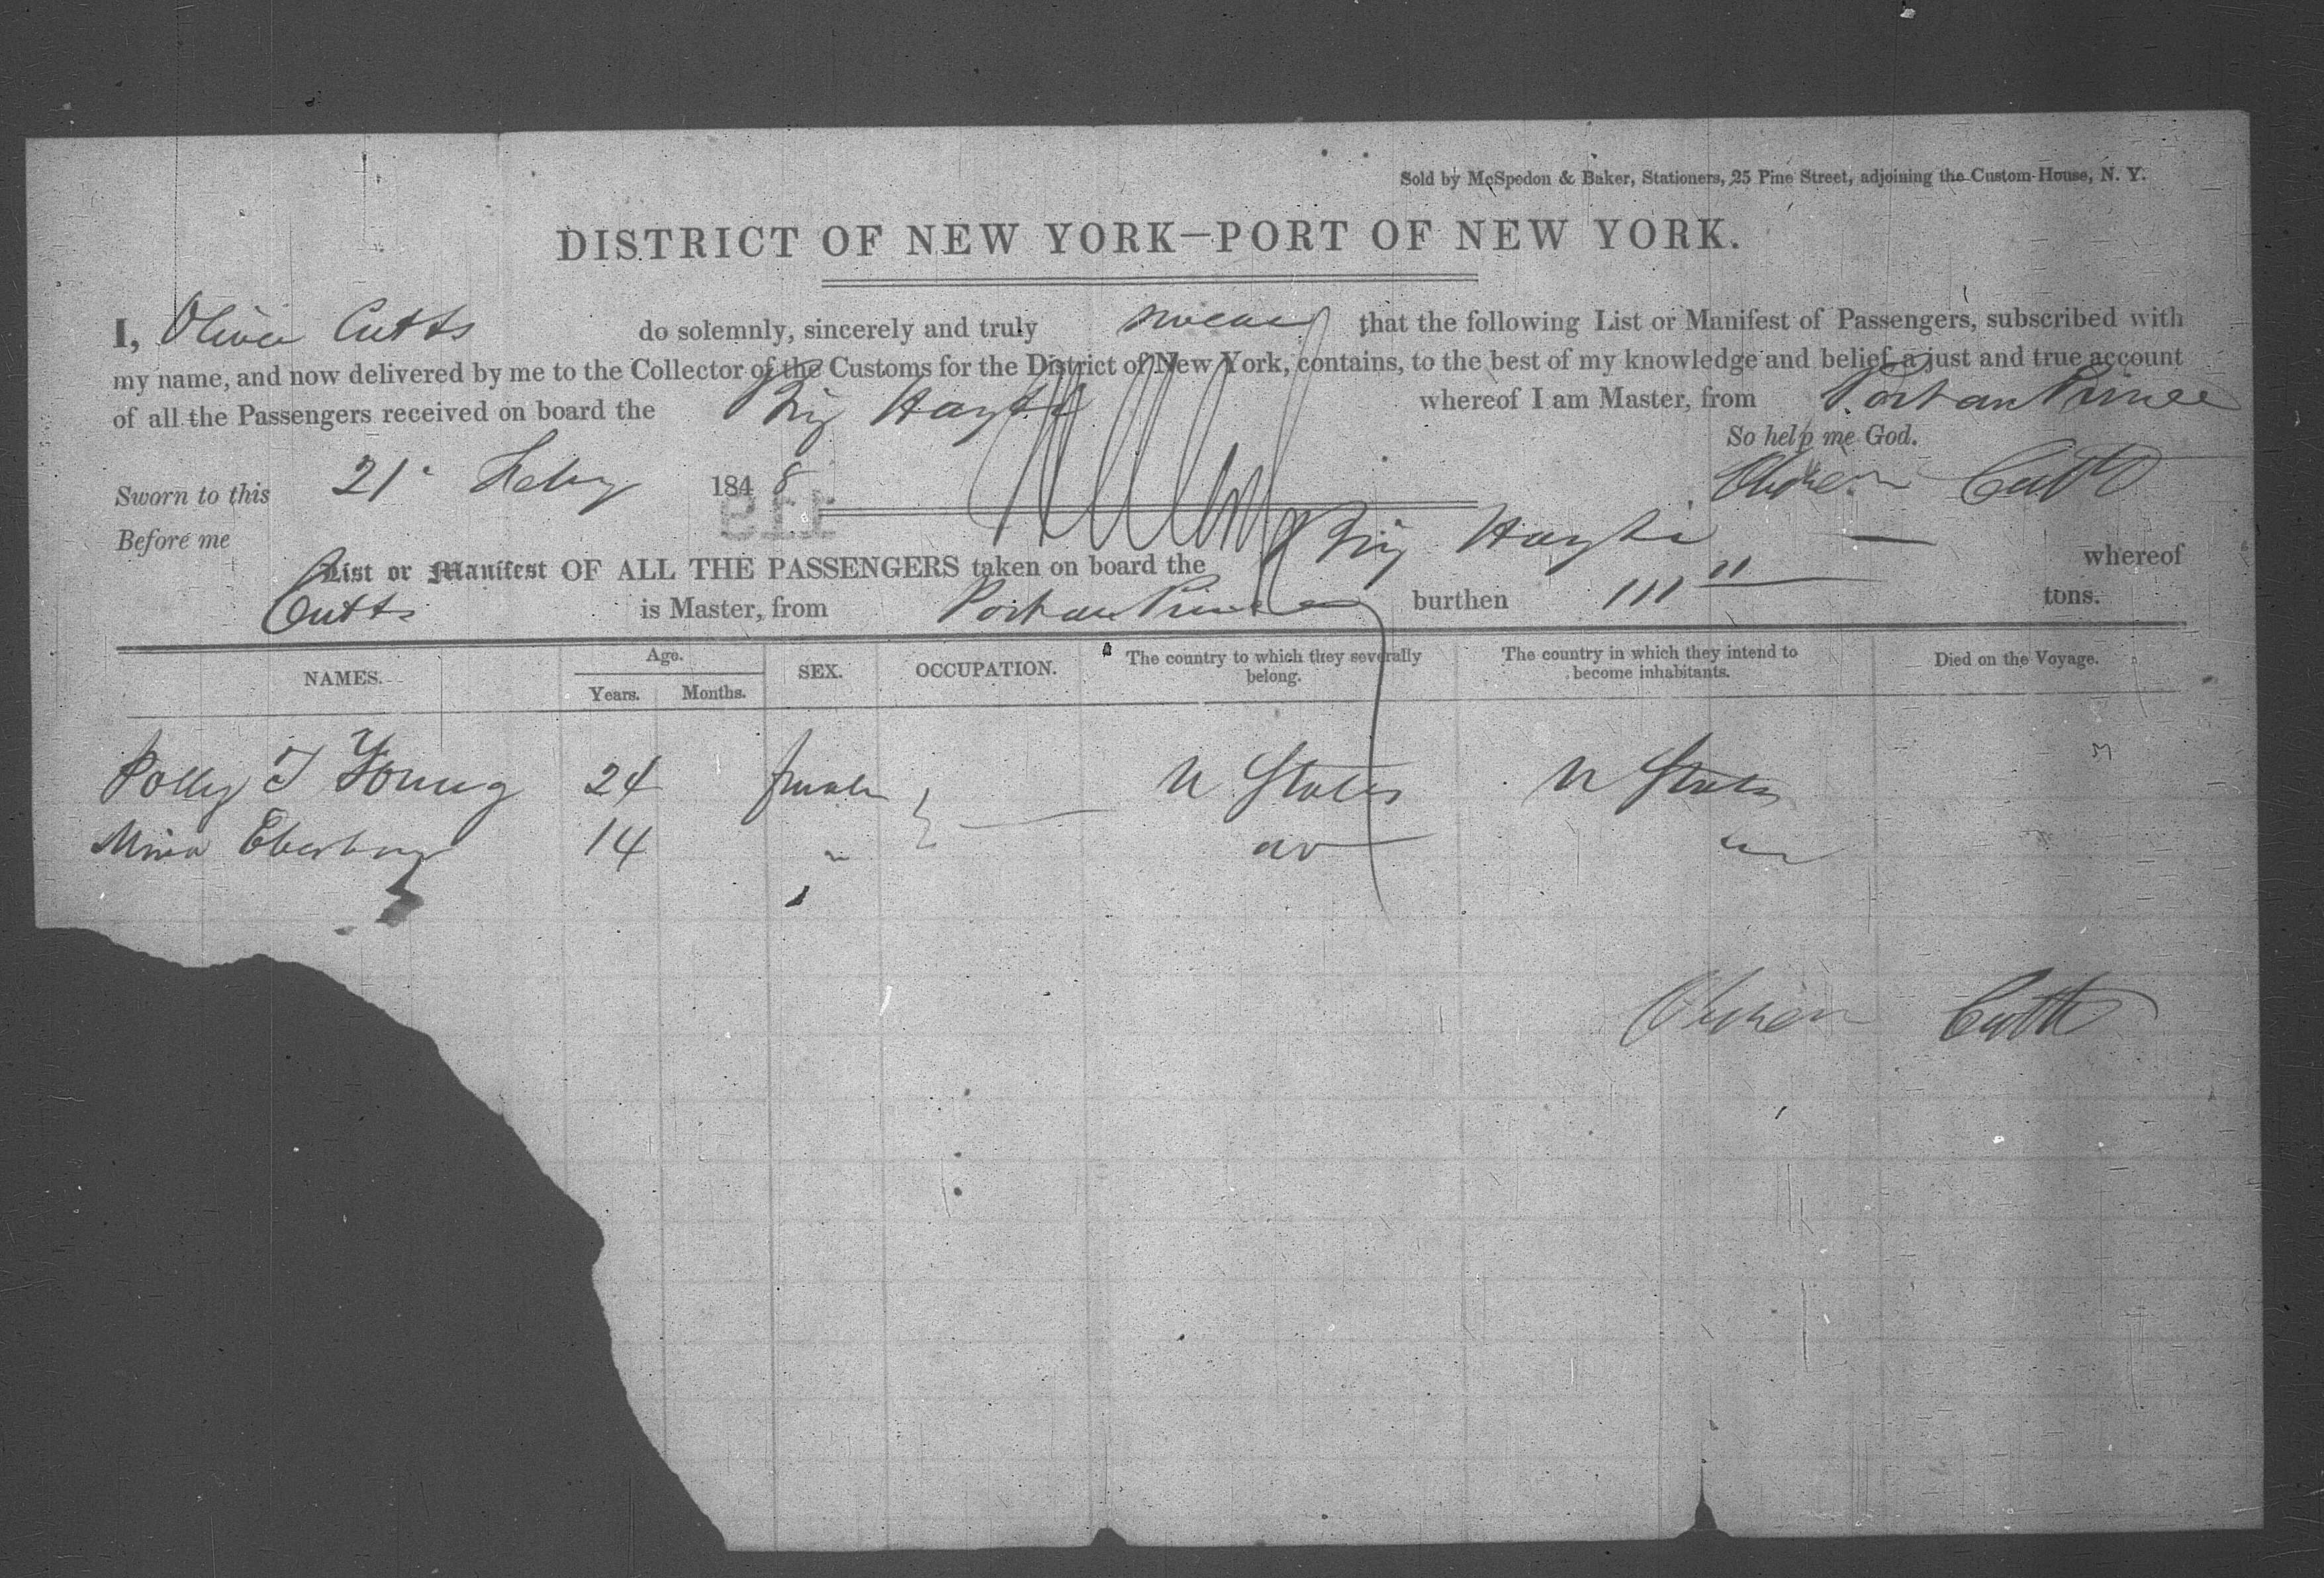 Sold by McSpedon & Baker, Stationers, 25 Pine Street, adjoining the Custom-House, N. Y.
DISTRICT OF NEW YORK—PORT OF NEW YORK.
I, Oliver Cutts do solemnly, sincerely and truly swear that the following List or Manifest of Passengers, subscribed with
my name, and now delivered by me to the Collector of the Customs for the District of New York, contains, to the best of my knowledge and belief, a just and true account
of all the Passengers received on board the Brig Hayti whereof I am Master, from Port au Prince
So help me God.
Sworn to this 21 Feby 1848 Oliver Cutts
119
Before me
List or Manifest OF ALL THE PASSENGERS taken on board the Brig Hayti whereof
Cutts is Master, from Port au Prince burthen 111 tons.
NAMES. Age. Years. Months. SEX. OCCUPATION. The country to which they severally belong. The country in which they intend to become inhabitants. Died on the Voyage.
Polly T Young 24 female U States U States
14 do
Oliver Cutts